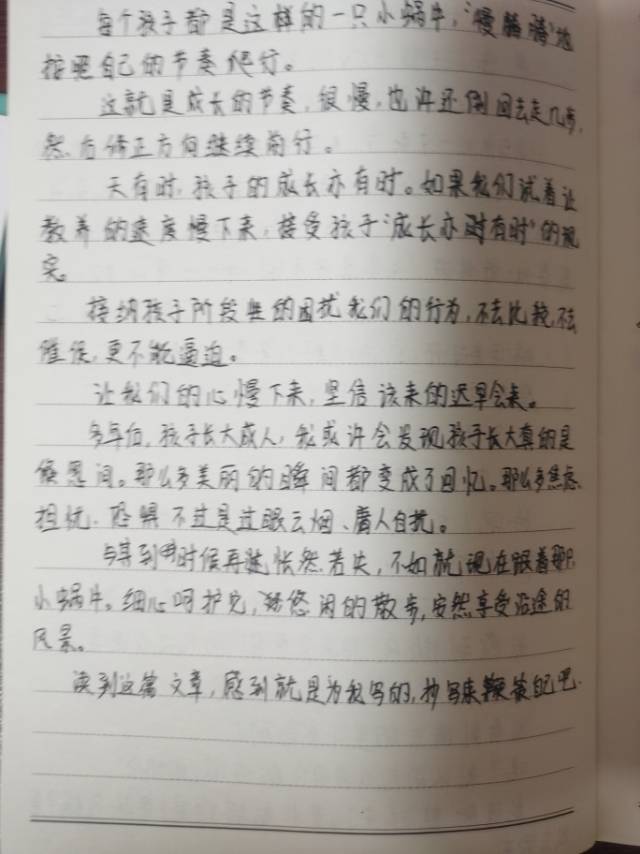 每个孩子都是这样的一只小蜗牛，“慢腾腾”地
按照自己的节奏爬行。
这就是成长的节奏，很慢，也许还倒回去走几步，
然后修正方向继续前行。
天有时，孩子的成长亦有时。如果我们试着让
教养的速度慢下来，接受孩子“成长亦时有时”的现
实
接纳孩子阶段性的困扰我们的行为，不去比较，不去
催促，更不能逼迫。
让我们的心慢下来，坚信该来的迟早会来。
多年后，孩子长大成人，我或许会发现孩子长大真的是
倏忽间。那么多美丽的瞬间都变成了回忆。那么多焦虑、
担忧、恐惧不过是过眼云烟、庸人自扰。
与其到那时候再怅然若失，不如就现在跟着那只
小蜗牛。细心呵护它，悠闲的散步，安然享受沿途的
风景。
读到这篇文章，感到就是为我写的，抄写来鞭策自己吧.